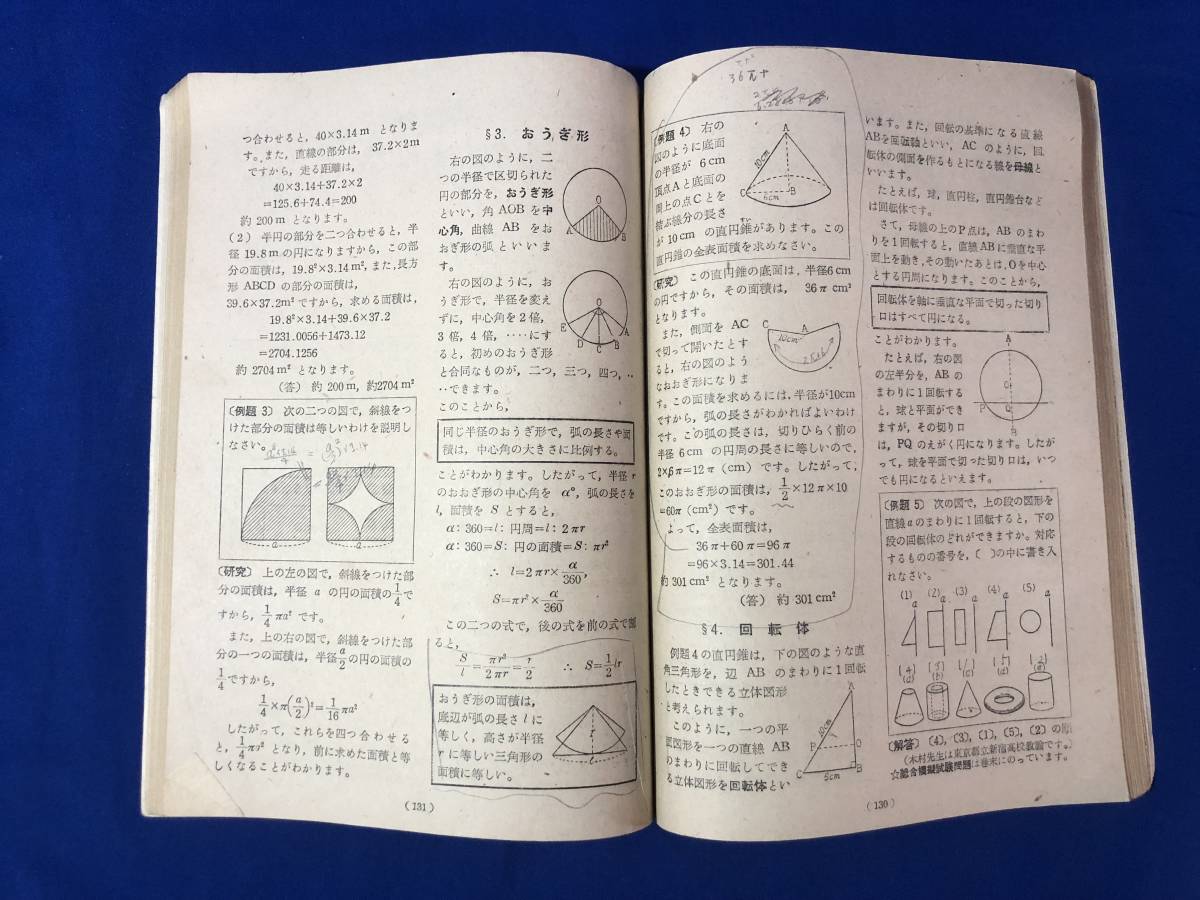 つ合わせると，40×3.14m となりま
す。また，直線の部分は，37.2×2m
ですから，走る距離は，
40×3.14+37.2×2
=125.6+74.4=200
約 200m となります。
(2) 半円の部分を二つ合わせると，半
径 19.8m の円になりますから，この部
分の面積は，19.8²×3.14m², また，長方
形 ABCD の部分の面積は，
39.6×37.2m² ですから，求める面積は，
19.8²×3.14+39.6×37.2
=1231.0056+1473.12
=2704.1256
約 2704m² となります。
(答) 約 200m, 約2704m²
〔例題 3〕 次の二つの図で，斜線をつ
けた部分の面積は等しいわけを説明し
なさい。
a
a
〔研究〕 上の左の図で，斜線をつけた部
分の面積は，半径 a の円の面積の1/4で
すから，1/4πa² です。
また，上の右の図で，斜線をつけた部
分の一つの面積は，半径a/2の円の面積の
1/4ですから，
1/4×π(a/2)²=1/16πa²
したがって，これらを四つ合わせる
と，1/4πa² となり，前に求めた面積と等
しくなることがわかります。
§3. おうぎ形
右の図のように，二
つの半径で区切られた
円の部分を，おうぎ形
といい，角 AOB を中
心角，曲線 AB をお
おぎ形の弧といいま
す。
O
A
B
右の図のように，お
うぎ形で，半径を変え
ずに，中心角を 2倍，
3倍，4倍，‥‥にす
ると，初めのおうぎ形
と合同なものが，二つ，三つ，四つ，‥
‥できます。
O
E
D
C
B
A
このことから，
同じ半径のおうぎ形で，弧の長さや面
積は，中心角の大きさに比例する。
ことがわかります。したがって，半径 r
のおおぎ形の中心角を α°，弧の長さを
l, 面積を S とすると，
α:360=l:円周=l:2πr
α:360=S:円の面積=S:πr²
∴ l=2πr×α/360,
S=πr²×α/360
この二つの式で，後の式を前の式で割
ると，
S/l=πr²/2πr=r/2 ∴ S=1/2lr
おうぎ形の面積は，
底辺が弧の長さ l に
等しく，高さが半径
r に等しい三角形の
面積に等しい。
r
(131)
36π+
〔例題 4〕 右の
図のように底面
の半径が 6cm
頂点Aと底面の
周上の点Cとを
結ぶ線分の長さ
が 10cm の直円錐があります。この
直円錐の全表面積を求めなさい。
A
10cm
C
B
6cm
〔研究〕 この直円錐の底面は，半径6cm
の円ですから，その面積は，36π cm²
となります。
また，側面を AC
で切って開いたとす
ると，右の図のよう
なおおぎ形になりま
す。この面積を求めるには，半径が10cm
ですから，弧の長さがわかればよいわけ
です。この弧の長さは，切りひらく前の
半径 6cm の円周の長さに等しいので，
2×6π=12π (cm) です。したがって，
このおおぎ形の面積は，1/2×12π×10
=60π (cm²) です。
C
A
10cm
よって，全表面積は，
36π+60π=96π
=96×3.14=301.44
約 301cm² となります。
(答) 約 301cm²
§4. 回転体
例題4の直円錐は，下の図のような直
角三角形を，辺 AB のまわりに1回転
したときできる立体図形
と考えられます。
このように，一つの平
面図形を一つの直線 AB
のまわりに回転してでき
る立体図形を回転体とい
A
10cm
P
O
C
B
6cm
います。また，回転の基準になる直線
ABを回転軸といい，AC のように，回
転体の側面を作るもとになる線を母線と
いいます。
たとえば，球，直円柱，直円錐台など
は回転体です。
さて，母線の上のP点は，AB のまわ
りを1回転すると，直線ABに垂直な平
面上を動き，その動いたあとは，Oを中心
とする円周になります。このことから，
回転体を軸に垂直な平面で切った切り
口はすべて円になる。
ことがわかります。
たとえば，右の図
の左半分を，AB の
まわりに1回転する
と，球と平面ができ
ますが，その切り口
は，PQ のえがく円になります。したが
って，球を平面で切った切り口は，いつ
でも円になるといえます。
P
〔例題 5〕 次の図で，上の段の図形を
直線aのまわりに1回転すると，下の
段の回転体のどれができますか。対応
するものの番号を，( )の中に書き入
れなさい。
(1) (2) (3) (4) (5)
〔解答〕 (4), (3), (1), (5), (2) の順
(木村先生は東京都立新宿高校教諭です。)
☆総合模擬試験問題は巻末にのっています。
(130)